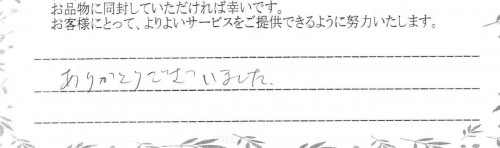 お品物に同封していただければ幸いです。
お客様にとって、よりよいサービスをご提供できるように努力いたします。
ありがとうございました.